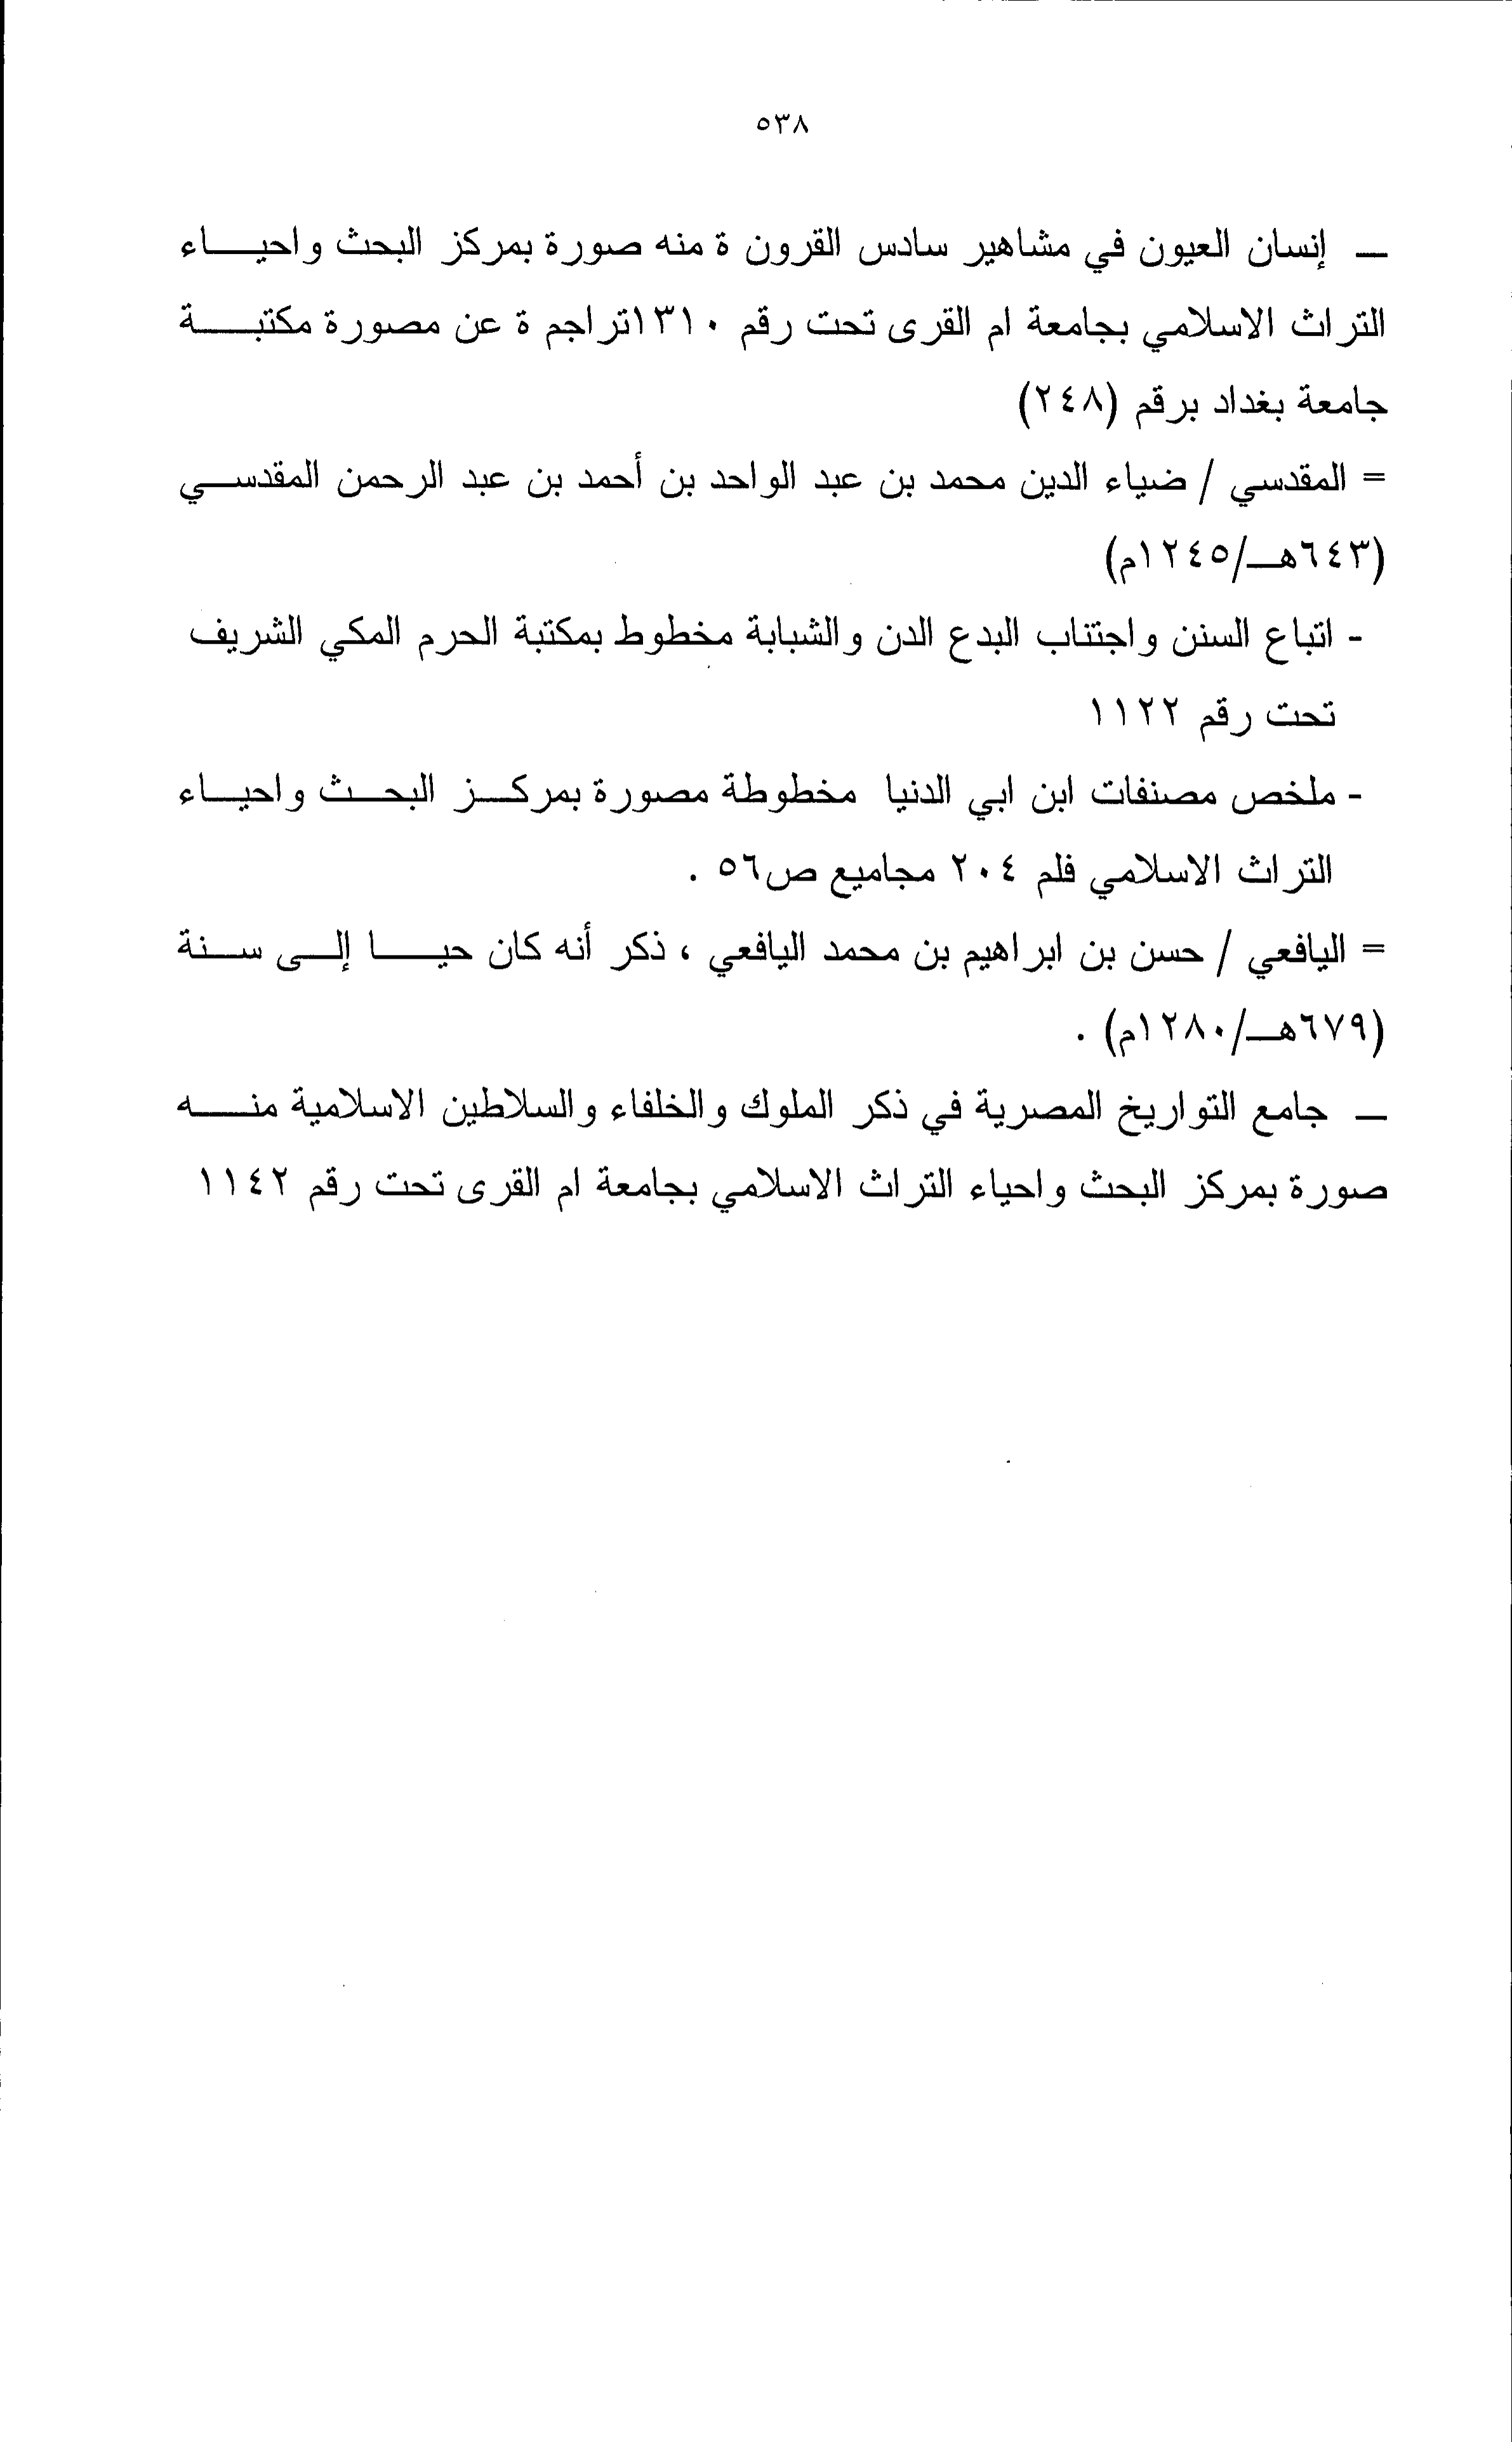 ٥٣٨
ــ إنسان العيون في مشاهير سادس القرون ة منه صورة بمركز البحث واحيـــاء
التراث الاسلامي بجامعة ام القرى تحت رقم ١٣١٠تراجم ة عن مصورة مكتبـــة
جامعة بغداد برقم (٢٤٨)
= المقدسي / ضياء الدين محمد بن عبد الواحد بن أحمد بن عبد الرحمن المقدســي
(٦٤٣هــ/١٢٤٥م)
- اتباع السنن واجتناب البدع الدن والشبابة مخطوط بمكتبة الحرم المكي الشريف
تحت رقم ١١٢٢
- ملخص مصنفات ابن ابي الدنيا مخطوطة مصورة بمركــز البحــث واحيــاء
التراث الاسلامي فلم ٢٠٤ مجاميع ص٥٦ .
= اليافعي / حسن بن ابراهيم بن محمد اليافعي ، ذكر أنه كان حيـــا إلــى ســنة
(٦٧٩هــ/١٢٨٠م) .
ــ جامع التواريخ المصرية في ذكر الملوك والخلفاء والسلاطين الاسلامية منـــه
صورة بمركز البحث واحياء التراث الاسلامي بجامعة ام القرى تحت رقم ١١٤٢